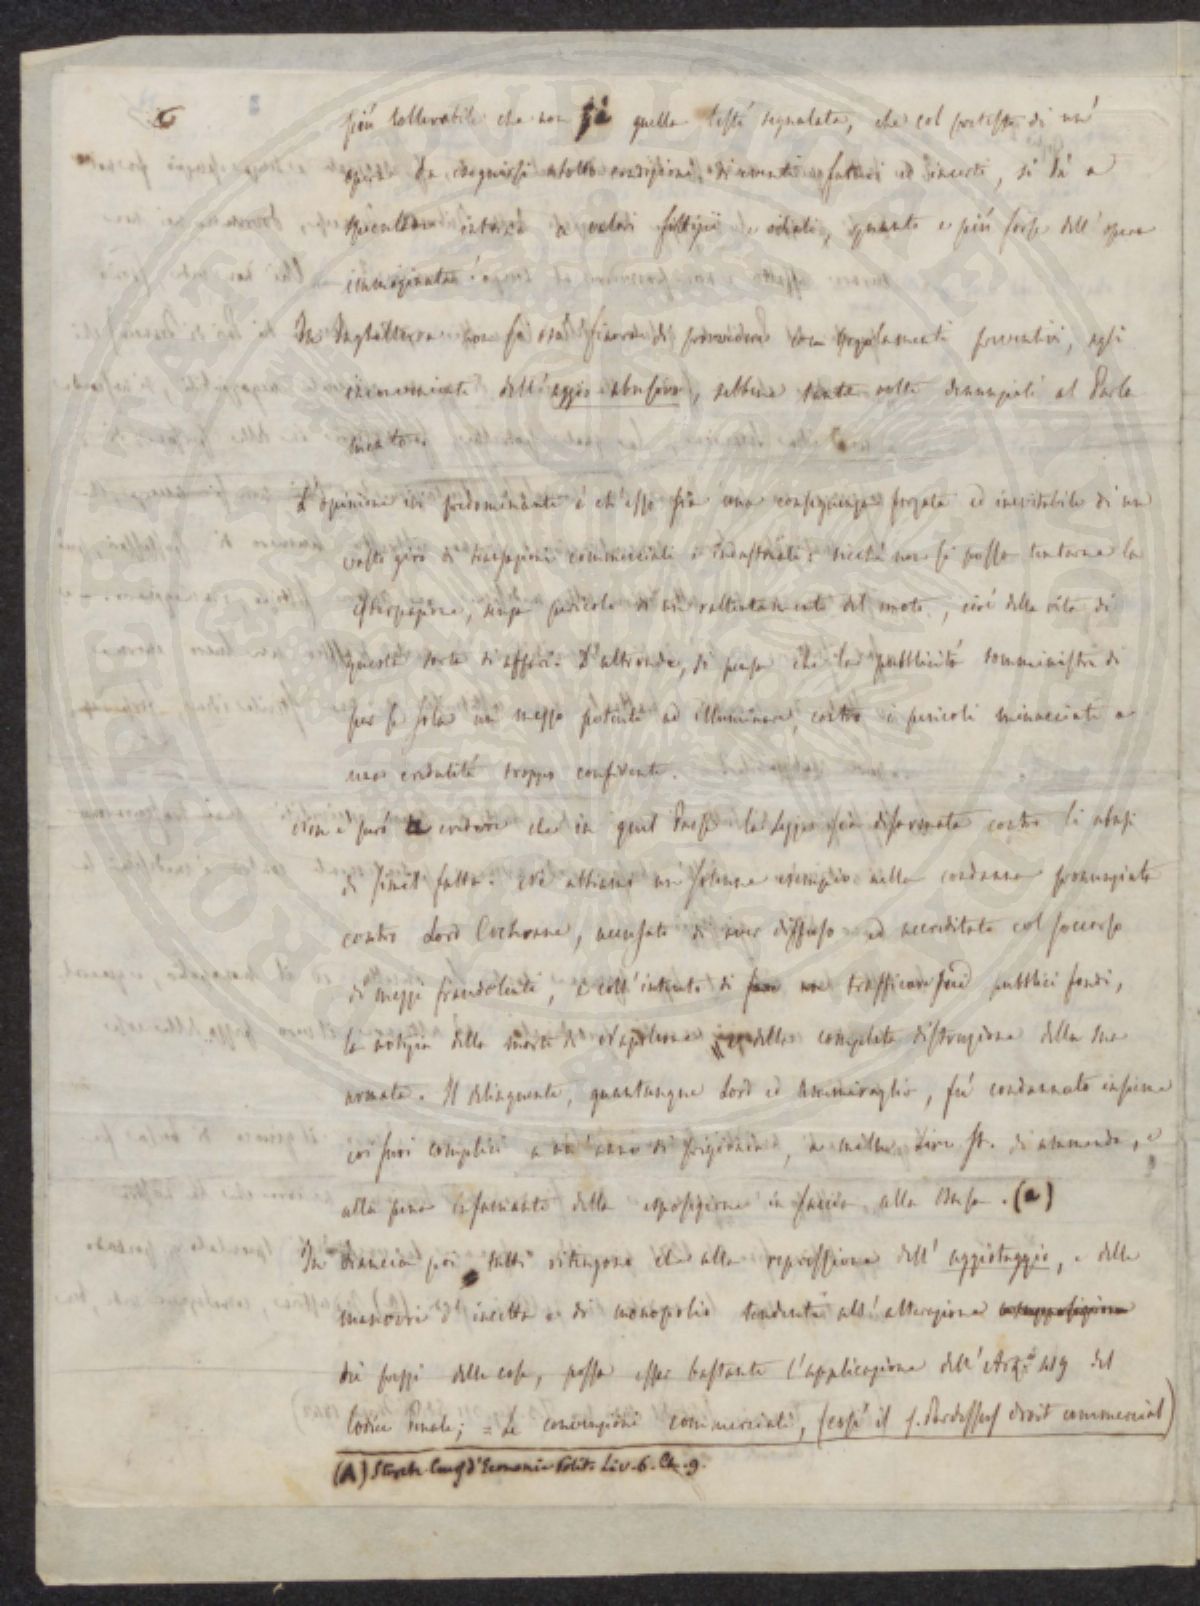 6
più tollerabile che non sia quella testè segnalata, che col pretesto di un'
opera da eseguirsi sotto condizioni di eventi futuri ed incerti, si dà a
intanto a valori fittizii e ideali, quanto e più forse dell'opera
immaginata.
In Inghilterra non si osò finora di provvedere con regolamenti preventivi, agli
inconvenienti dell'aggio abusivo, sebbene tante volte denunziati al Parla
mento.
L'opinione ivi predominante è ch'esso sia una conseguenza forzata ed inevitabile di un
vasto giro di transazioni commerciali e industriali: sicchè non si possa tentarne la
estirpazione, senza pericolo di un rallentamento del moto, cioè della vita di
questa sorta di affari. D'altronde, si pensa che la pubblicità somministri di
per se sola un mezzo potente ad illuminare, contro i pericoli minacciati a
una credulità troppo confidente.
Non è però a credere che in quel Paese la legge sia disarmata contro li abusi
di simil fatta. Ne abbiamo un solenne esempio nella condanna pronunziata
contro Lord Cochrane, accusato di aver diffuso ed accreditato col soccorso
di mezzi fraudolenti, e coll'intento di fare un trafficare sui pubblici fondi,
la notizia della morte di Napoleone e della completa distruzione della sua
armata. Il delinquente, quantunque Lord ed Ammiraglio, fù condannato insieme
coi suoi complici a un'anno di prigionia, a mille Lire St. di ammenda, e
alla pena infamante della esposizione in faccia alla Borsa. (a)
In Francia poi tutti ritengono che alla repressione dell'aggiotaggio, e delle
manovre d'incetta e di monopolio tendenti all'alterazione
dei prezzi delle cose, possa esser bastante l'applicazione dell'Art.º 419 del
Codice Penale; = Le convenzioni commerciali, (così il S. Pardessus droit commercial)
(A) Storch Cours d'Economie Polit. Liv. 6. Ch. 9.